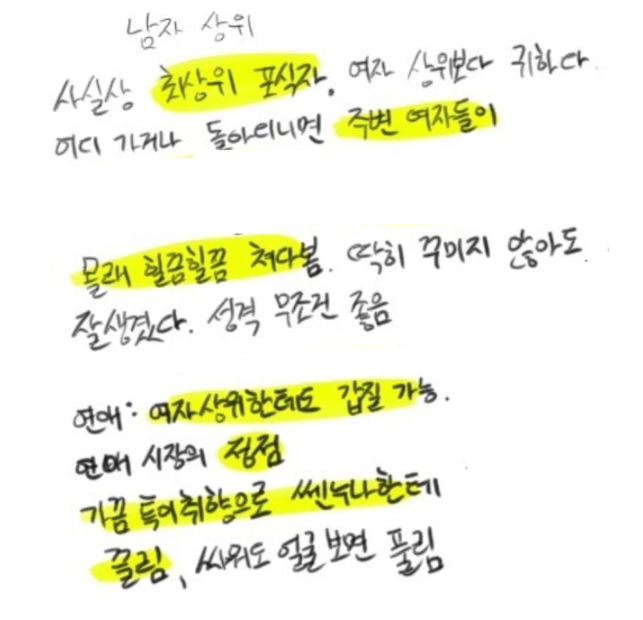 남자 상위
사실상 최상위 포식자. 여자 상위보다 귀하다.
어디 가거나 돌아다니면 주변 여자들이
몰래 힐끔힐끔 쳐다봄. 딱히 꾸미지 않아도
잘생겼다. 성격 무조건 좋음
연애: 여자상위한테도 갑질 가능.
연애 시장의 정점
가끔 특이취향으로 쎈누나한테
끌림, 싸워도 얼굴보면 풀림